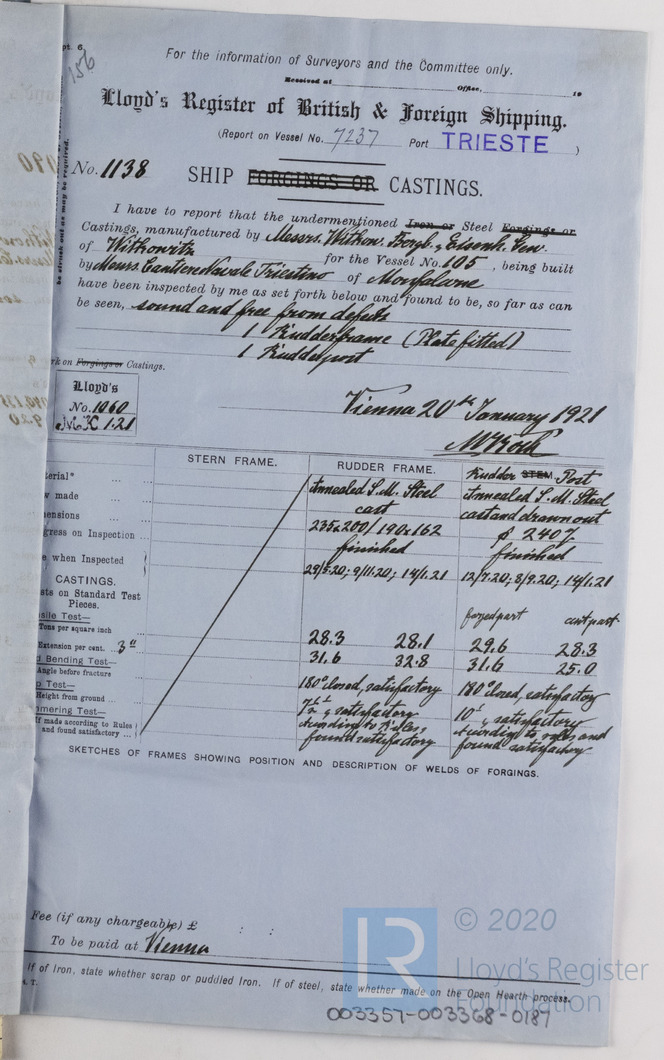 pt. 6.
156
For the information of Surveyors and the Committee only.
Received at Office, 19
Lloyd's Register of British & Foreign Shipping.
(Report on Vessel No. 7237 Port TRIESTE )
be struck out as may be required.
No. 1138
SHIP FORGINGS OR CASTINGS.
I have to report that the undermentioned Iron or Steel Forgings or
Castings, manufactured by Messrs. Witkow. Bergb. & Eisenh. Gew.
of Witkowitz for the Vessel No. 105, being built
by Messrs. Cantiere Navale Triestino of Monfalcone
have been inspected by me as set forth below and found to be, so far as can
be seen, sound and free from defects
1 Rudderframe (Plate fitted)
1 Rudderpost
rk on Forgings or Castings.
Lloyd's
No. 1060
1.21
Vienna 20th January 1921
STERN FRAME. RUDDER FRAME. Rudder STEM. Post
terial* ... ... Annealed S. M. Steel Annealed S. M. Steel
w made ... ... cast cast and drawn out
ensions ... ... 235 x 200 / 190 x 162 ø 240
gress on Inspection ... finished finished
e when Inspected 29/5.20; 9/11.20; 14/1.21 12/7.20; 8/9.20; 14/1.21
CASTINGS.
sts on Standard Test
Pieces.
sile Test— forged part cast part
Tons per square inch 28.3 28.1 29.6 28.3
Extension per cent. 3" 31.6 32.8 31.6 25.0
d Bending Test—
Angle before fracture 180° closed, satisfactory 180° closed, satisfactory
p Test—
Height from ground ... satisfactory 10' satisfactory
mmering Test—
If made according to Rules and found satisfactory ... According to Rules, found satisfactory According to rules and found satisfactory
SKETCHES OF FRAMES SHOWING POSITION AND DESCRIPTION OF WELDS OF FORGINGS.
Fee (if any chargeable) £ : :
To be paid at Vienna
If of Iron, state whether scrap or puddled Iron. If of steel, state whether made on the Open Hearth process.
. T.
LR
© 2020
Lloyd's Register
Foundation
003357-003368-0187